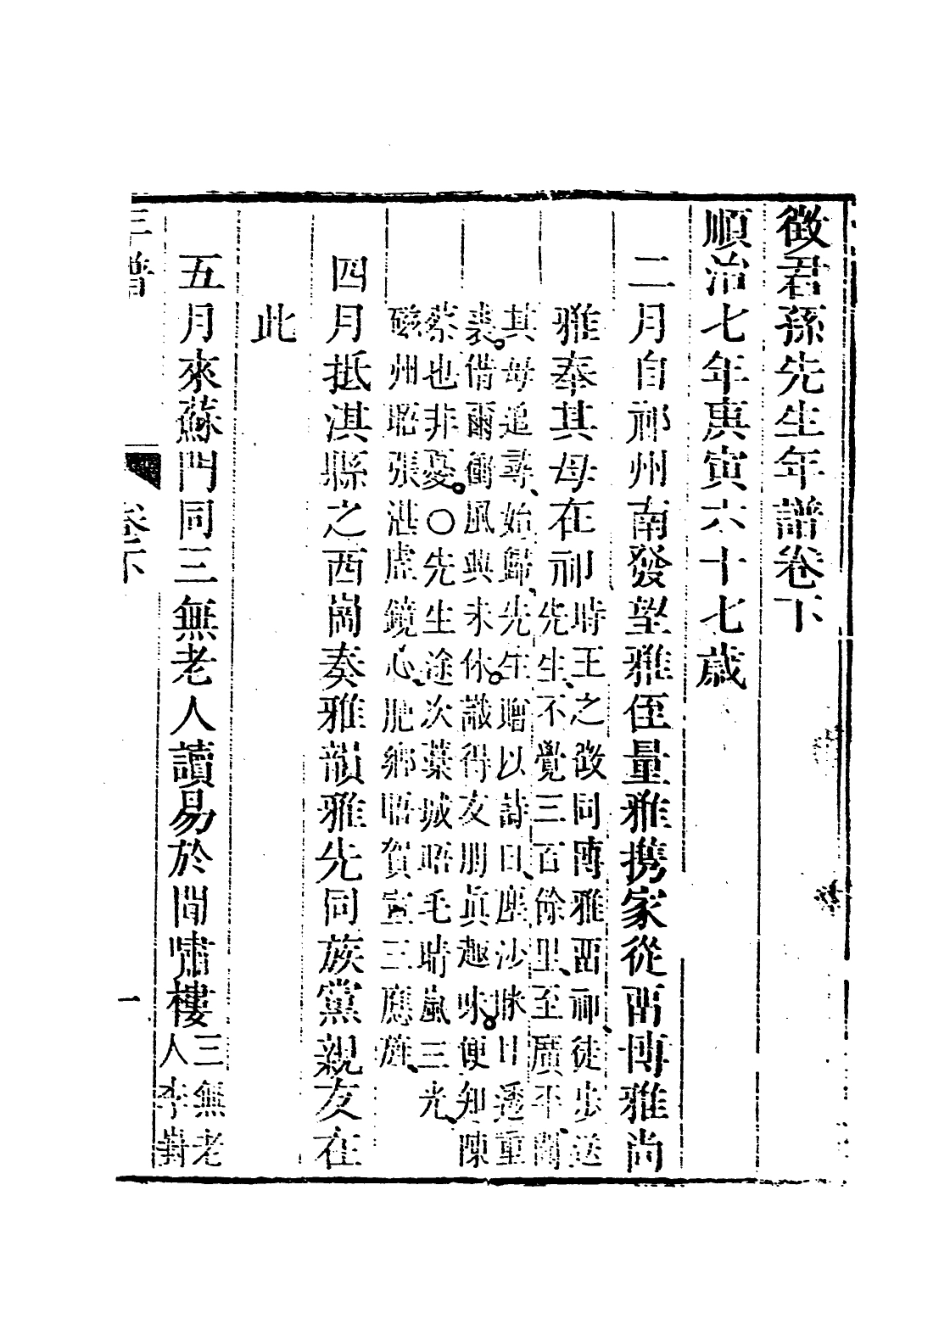 徵君孫先生年譜卷下
順治七年庚寅六十七歲
二月自祁州南發望雅侄量雅攜家從畱博雅尚
雅奉其母在祁時王之政同博雅畱祁徒步送
先生、不覺三百餘里、至廣平、間
其母追尋、始歸、先生贈以詩曰、塵沙眯日透重
裘。借爾衝風興未休。識得友朋眞趣味。便知陳
蔡也非憂。〇先生途次葉城晤毛晴嵐三光、
磁州晤張湛虛鏡心、肥鄉晤賀宣三應旌、
四月抵淇縣之西崗奏雅韻雅先同族黨親友在
此
五月來蘇門同三無老人讀易於聞嘯樓三無老
人李對
年譜
卷下
一